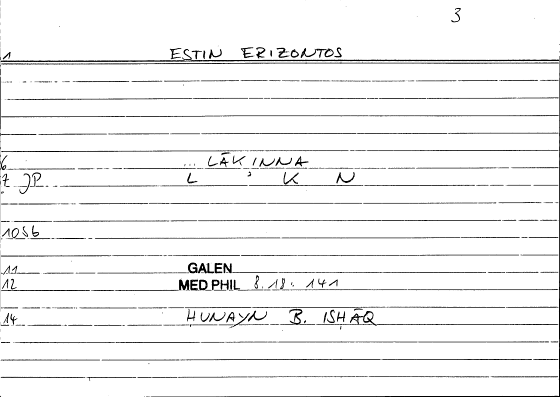 3
1 ESTIN ERIZONTOS
6 ... LĀKINNA
7 JP L ʾ K N
10 S6
11 GALEN
12 MED PHIL 8. 18. 141
14 ḤUNAYN B. ISḤĀQ